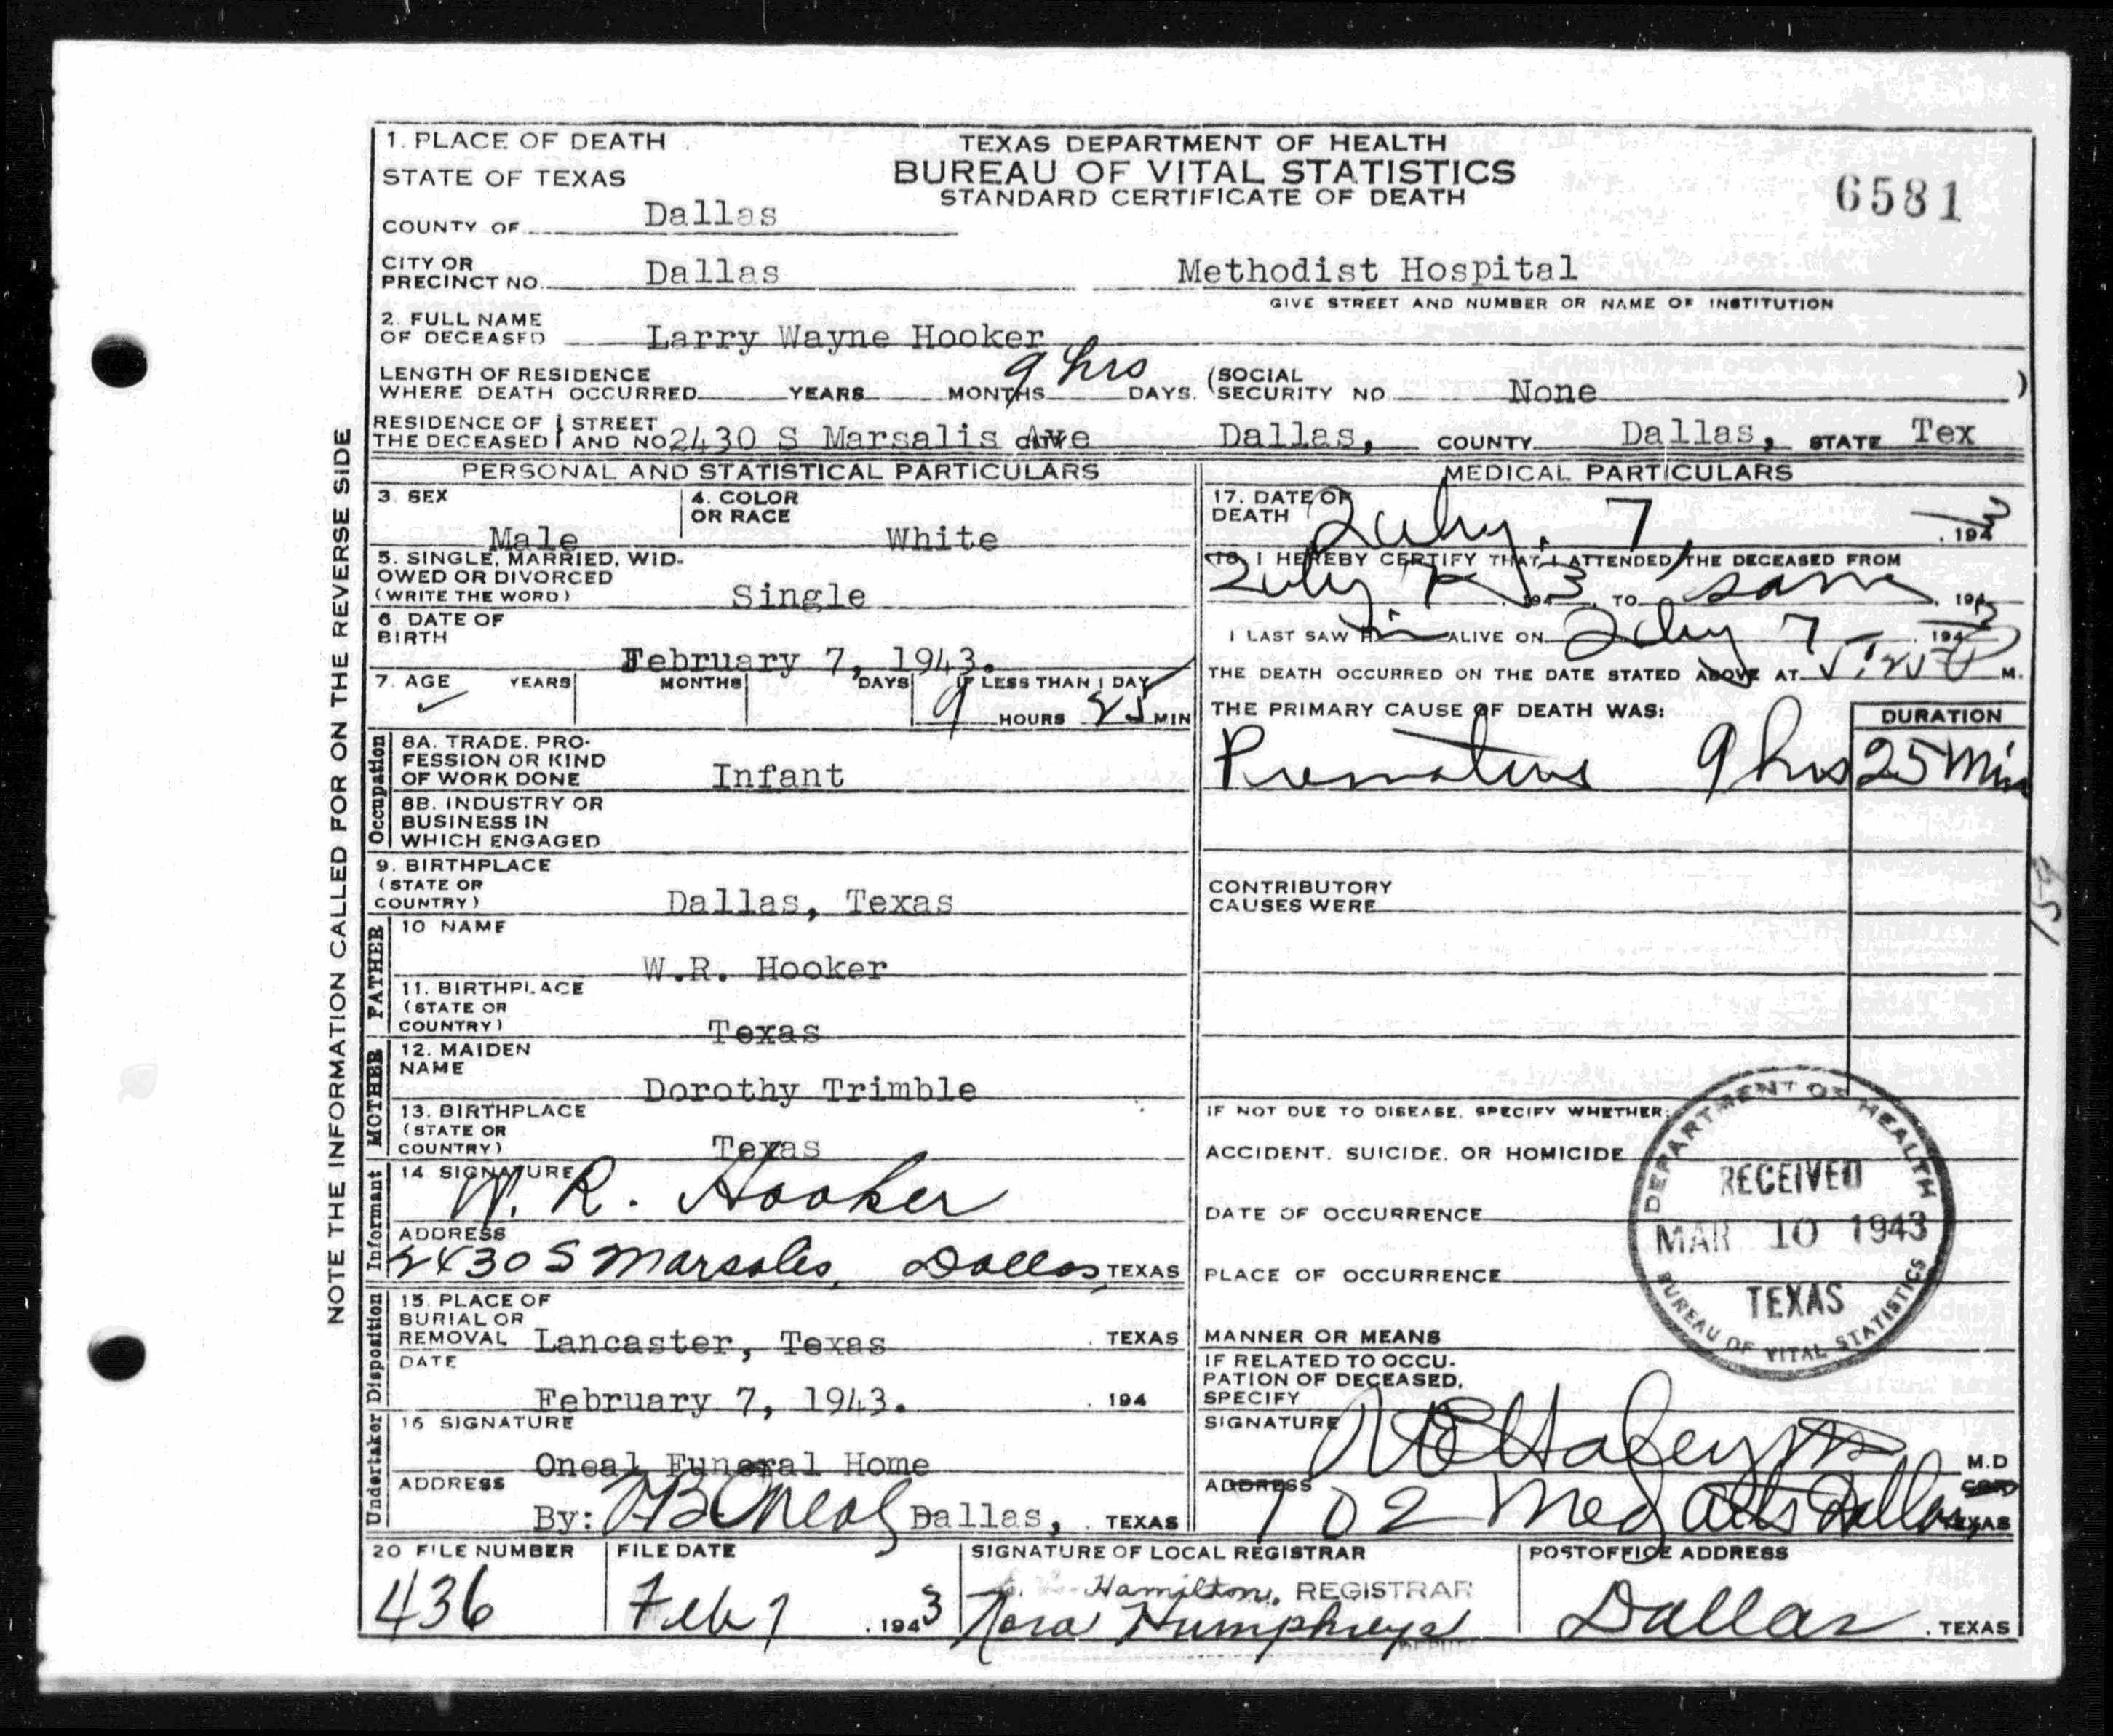 1. PLACE OF DEATH
STATE OF TEXAS
COUNTY OF Dallas
TEXAS DEPARTMENT OF HEALTH
BUREAU OF VITAL STATISTICS
STANDARD CERTIFICATE OF DEATH
6581
CITY OR PRECINCT NO. Dallas
Methodist Hospital
GIVE STREET AND NUMBER OR NAME OF INSTITUTION
2. FULL NAME OF DECEASED Larry Wayne Hooker
LENGTH OF RESIDENCE
WHERE DEATH OCCURRED YEARS MONTHS 9 hrs DAYS. (SOCIAL SECURITY NO. None )
RESIDENCE OF THE DECEASED STREET AND NO 2430 S Marsalis Ave Dallas, COUNTY Dallas, STATE Tex
NOTE THE INFORMATION CALLED FOR ON THE REVERSE SIDE
PERSONAL AND STATISTICAL PARTICULARS
3. SEX
Male
4. COLOR OR RACE
White
5. SINGLE, MARRIED, WID-
OWED OR DIVORCED
(WRITE THE WORD) Single
6. DATE OF BIRTH
February 7, 1943.
7. AGE YEARS MONTHS DAYS IF LESS THAN 1 DAY
9 HOURS 25 MIN
Occupation
8A. TRADE, PRO-
FESSION OR KIND
OF WORK DONE Infant
8B. INDUSTRY OR
BUSINESS IN
WHICH ENGAGED
9. BIRTHPLACE
(STATE OR
COUNTRY) Dallas, Texas
FATHER
10 NAME
W.R. Hooker
11. BIRTHPLACE
(STATE OR
COUNTRY) Texas
MOTHER
12. MAIDEN
NAME
Dorothy Trimble
13. BIRTHPLACE
(STATE OR
COUNTRY) Texas
Informant
14 SIGNATURE
W. R. Hooker
ADDRESS
2430 S Marsales, Dallas, TEXAS
Disposition
15. PLACE OF
BURIAL OR
REMOVAL Lancaster, Texas TEXAS
DATE
February 7, 1943. 194
Undertaker
16 SIGNATURE
Oneal Funeral Home
ADDRESS
By: Oneal Dallas, TEXAS
MEDICAL PARTICULARS
17. DATE OF DEATH Feby. 7, 1943
18. I HEREBY CERTIFY THAT I ATTENDED THE DECEASED FROM
Feby 7 1943, TO same, 1943
I LAST SAW him ALIVE ON Feby 7 1943
THE DEATH OCCURRED ON THE DATE STATED ABOVE AT M.
THE PRIMARY CAUSE OF DEATH WAS: DURATION
Premature 9 hrs 25 min
CONTRIBUTORY
CAUSES WERE
159
IF NOT DUE TO DISEASE, SPECIFY WHETHER:
ACCIDENT, SUICIDE, OR HOMICIDE
DATE OF OCCURRENCE
PLACE OF OCCURRENCE
MANNER OR MEANS
IF RELATED TO OCCU-
PATION OF DECEASED,
SPECIFY
DEPARTMENT OF HEALTH
RECEIVED
MAR 10 1943
TEXAS
BUREAU OF VITAL STATISTICS
SIGNATURE M.D
ADDRESS
102 Med Arts Dallas, TEXAS
20 FILE NUMBER
436
FILE DATE
Feb 7, 1943
SIGNATURE OF LOCAL REGISTRAR
Hamilton, REGISTRAR
Nora Humphreys
DEPUTY
POSTOFFICE ADDRESS
Dallas, TEXAS